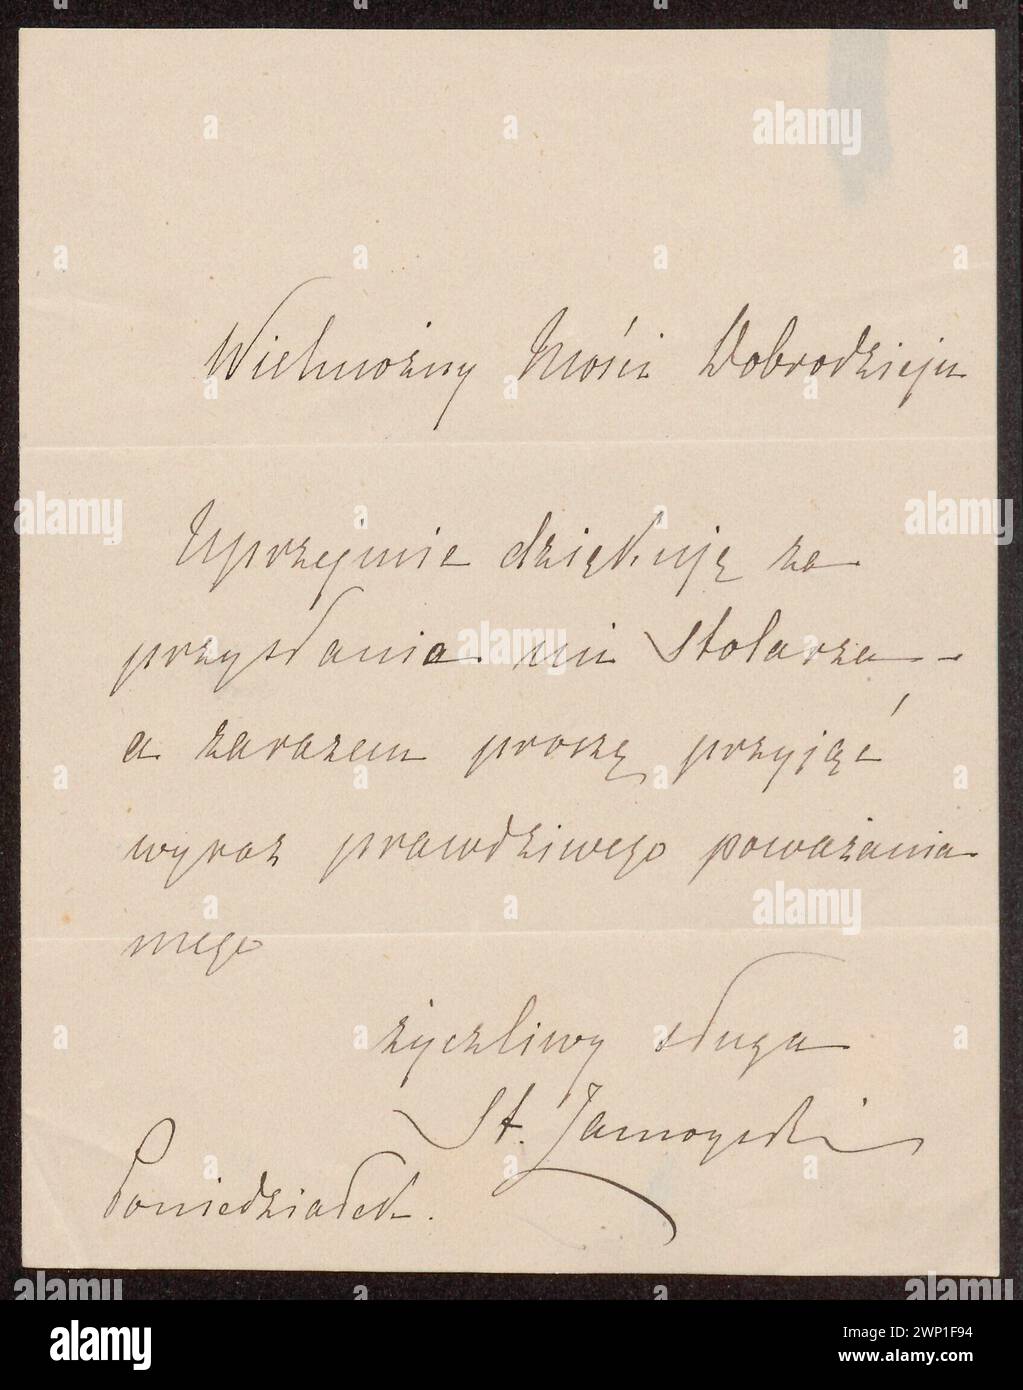 Wielmożny Mości Dobrodzieju
Uprzejmie dziękuję za
przysłania mi Stolarza –
a zarazem proszę przyjąć
wyraz prawdziwego poważania
mego
życzliwy sługa
St. Zamoyski
Poniedziałek.
alamy
Image ID: 2WP1F94
www.alamy.com